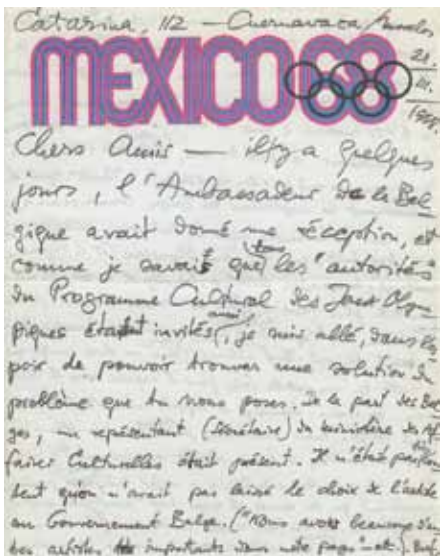 Catarina, 112 — Cuernavaca/Morelos
21.
III.
MEXICO 68
Chers Amis — il y a quelques
jours, l'Ambassadeur de la Bel
gique avait donné une réception, et
comme je savait que tous les "autorités"
du Programme Cultural des Jeux Olym
piques étaient invités aussi, je suis allé, dans l'es
poir de pouvoir trouver une solution du
problème que tu nous poses. De la part des Bel
ges, un représentant (secrétaire) du ministère des Af
faires Culturelles était présent. Il n'était pas
tent qu'on n'avait pas laissé le choix de l'artiste
au Gouvernement Belge. ("Nous avons beaucoup d'au
tres artistes importants dans notre pays" etc).